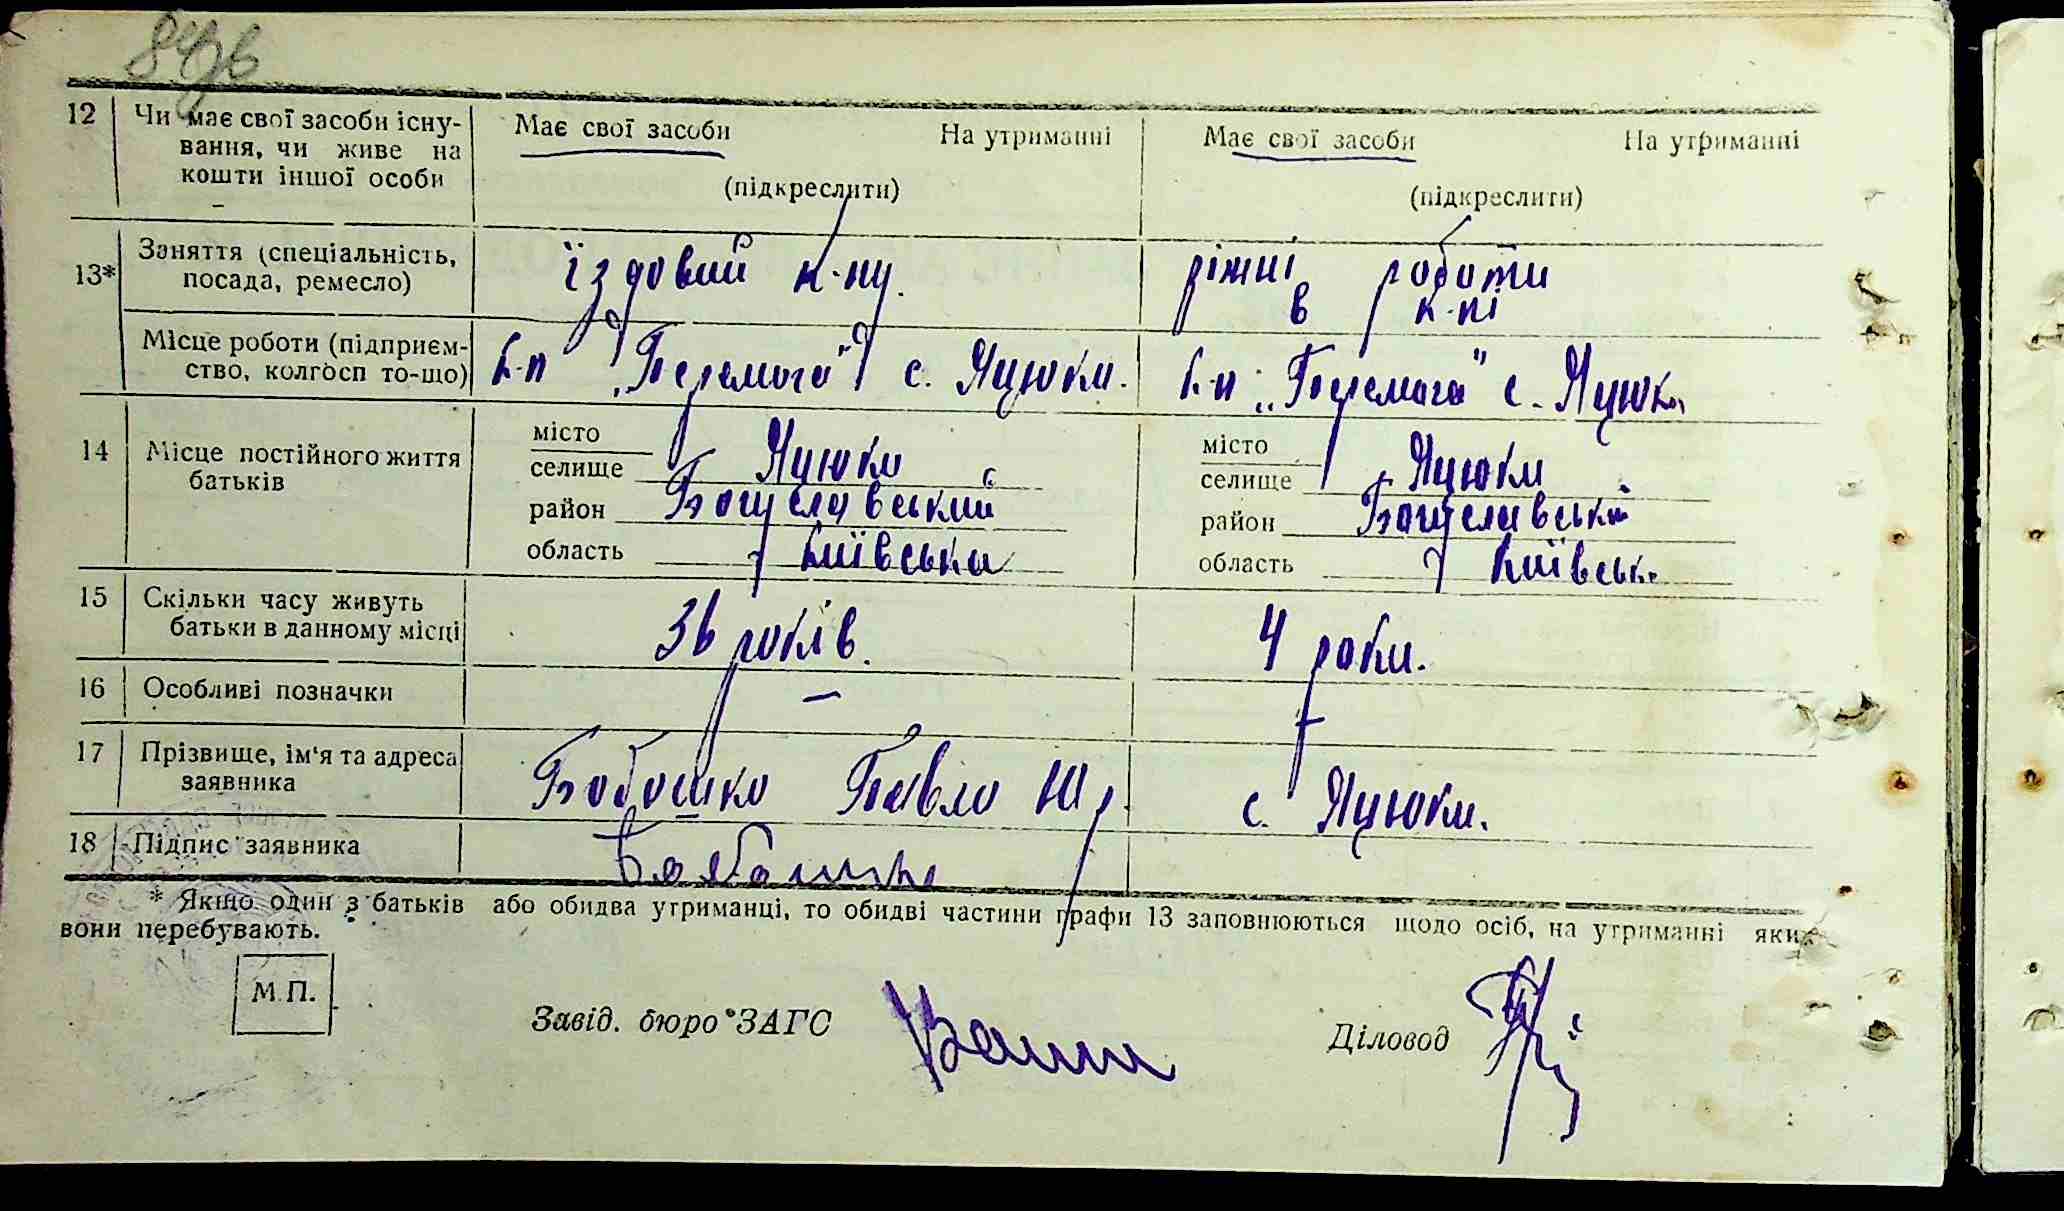 12 Чи має свої засоби існу- Має свої засоби На утриманні Має свої засоби На утриманні
вання, чи живе на
кошти іншої особи (підкреслити) (підкреслити)
13* Заняття (спеціальність, їздовий к-пу. ріжні роботи
посада, ремесло) в к-пі
Місце роботи (підприєм- к-п „Перемога" с. Яцюки. к-п „Перемога" с. Яцюки
ство, колгосп то-що)
14 Місце постійного життя місто місто
батьків селище Яцюки селище Яцюки
район Богуславський район Богуславський
область Київська область Київська
15 Скільки часу живуть 36 років. 4 роки.
батьки в данному місці
16 Особливі позначки – –
17 Прізвище, ім'я та адреса Бобошко Павло Юр. с. Яцюки.
заявника
18 Підпис заявника
* Якщо один з батьків або обидва утриманці, то обидві частини графи 13 заповнюються щодо осіб, на утриманні яких
вони перебувають.
М.П. Завід. бюро ЗАГС Діловод